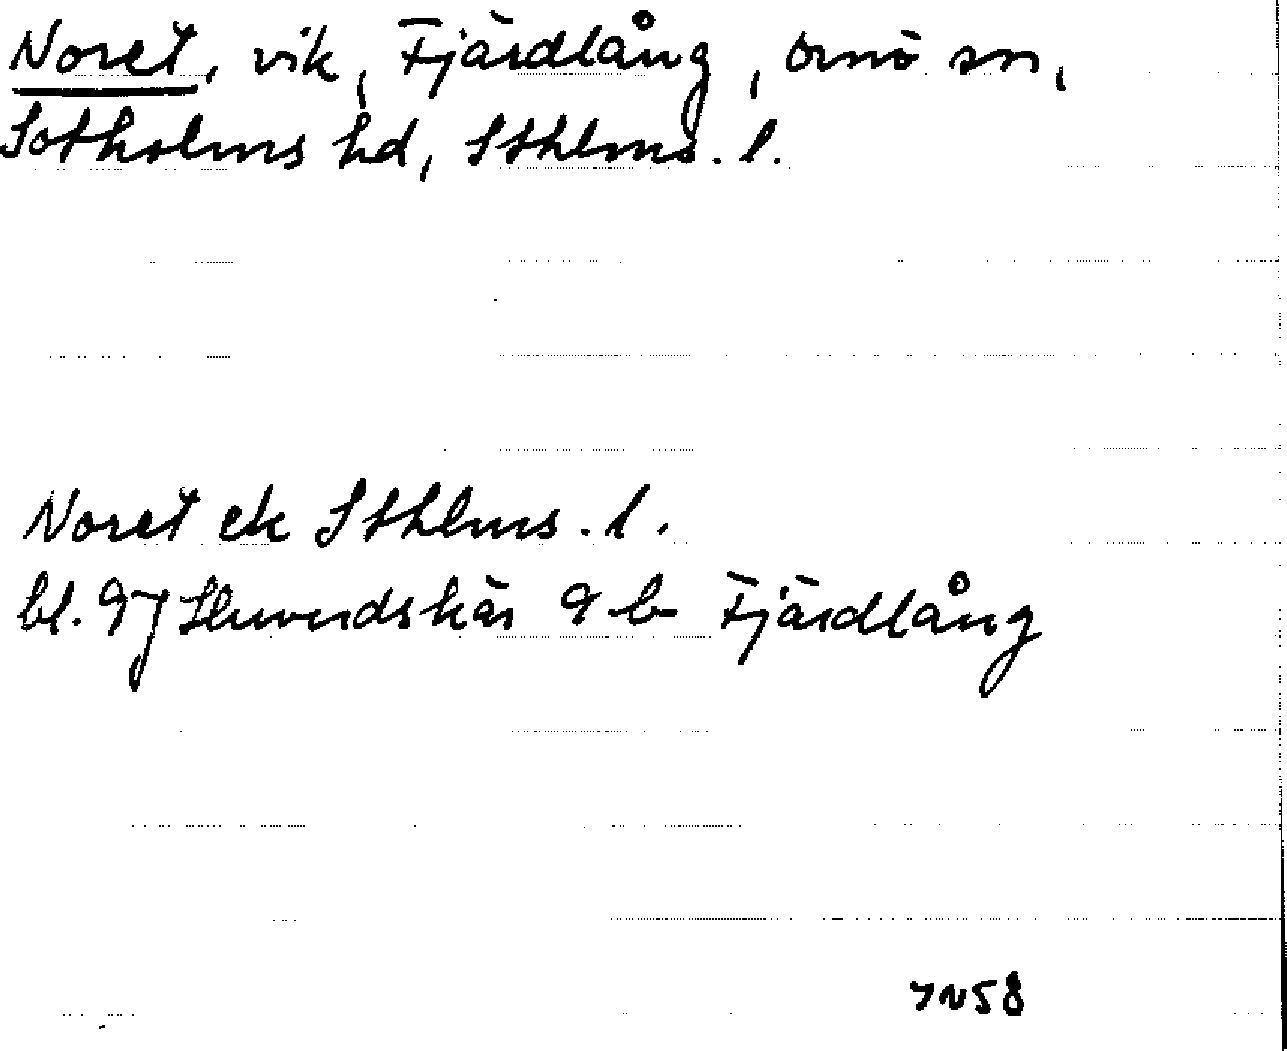 Noret, vik, Fjärdlång, Ornö sn,
Sotholms hd, Sthlms. l.
Noret ek Sthlms. l.
bl. 9J Huvudskär 9 b Fjärdlång
JN58